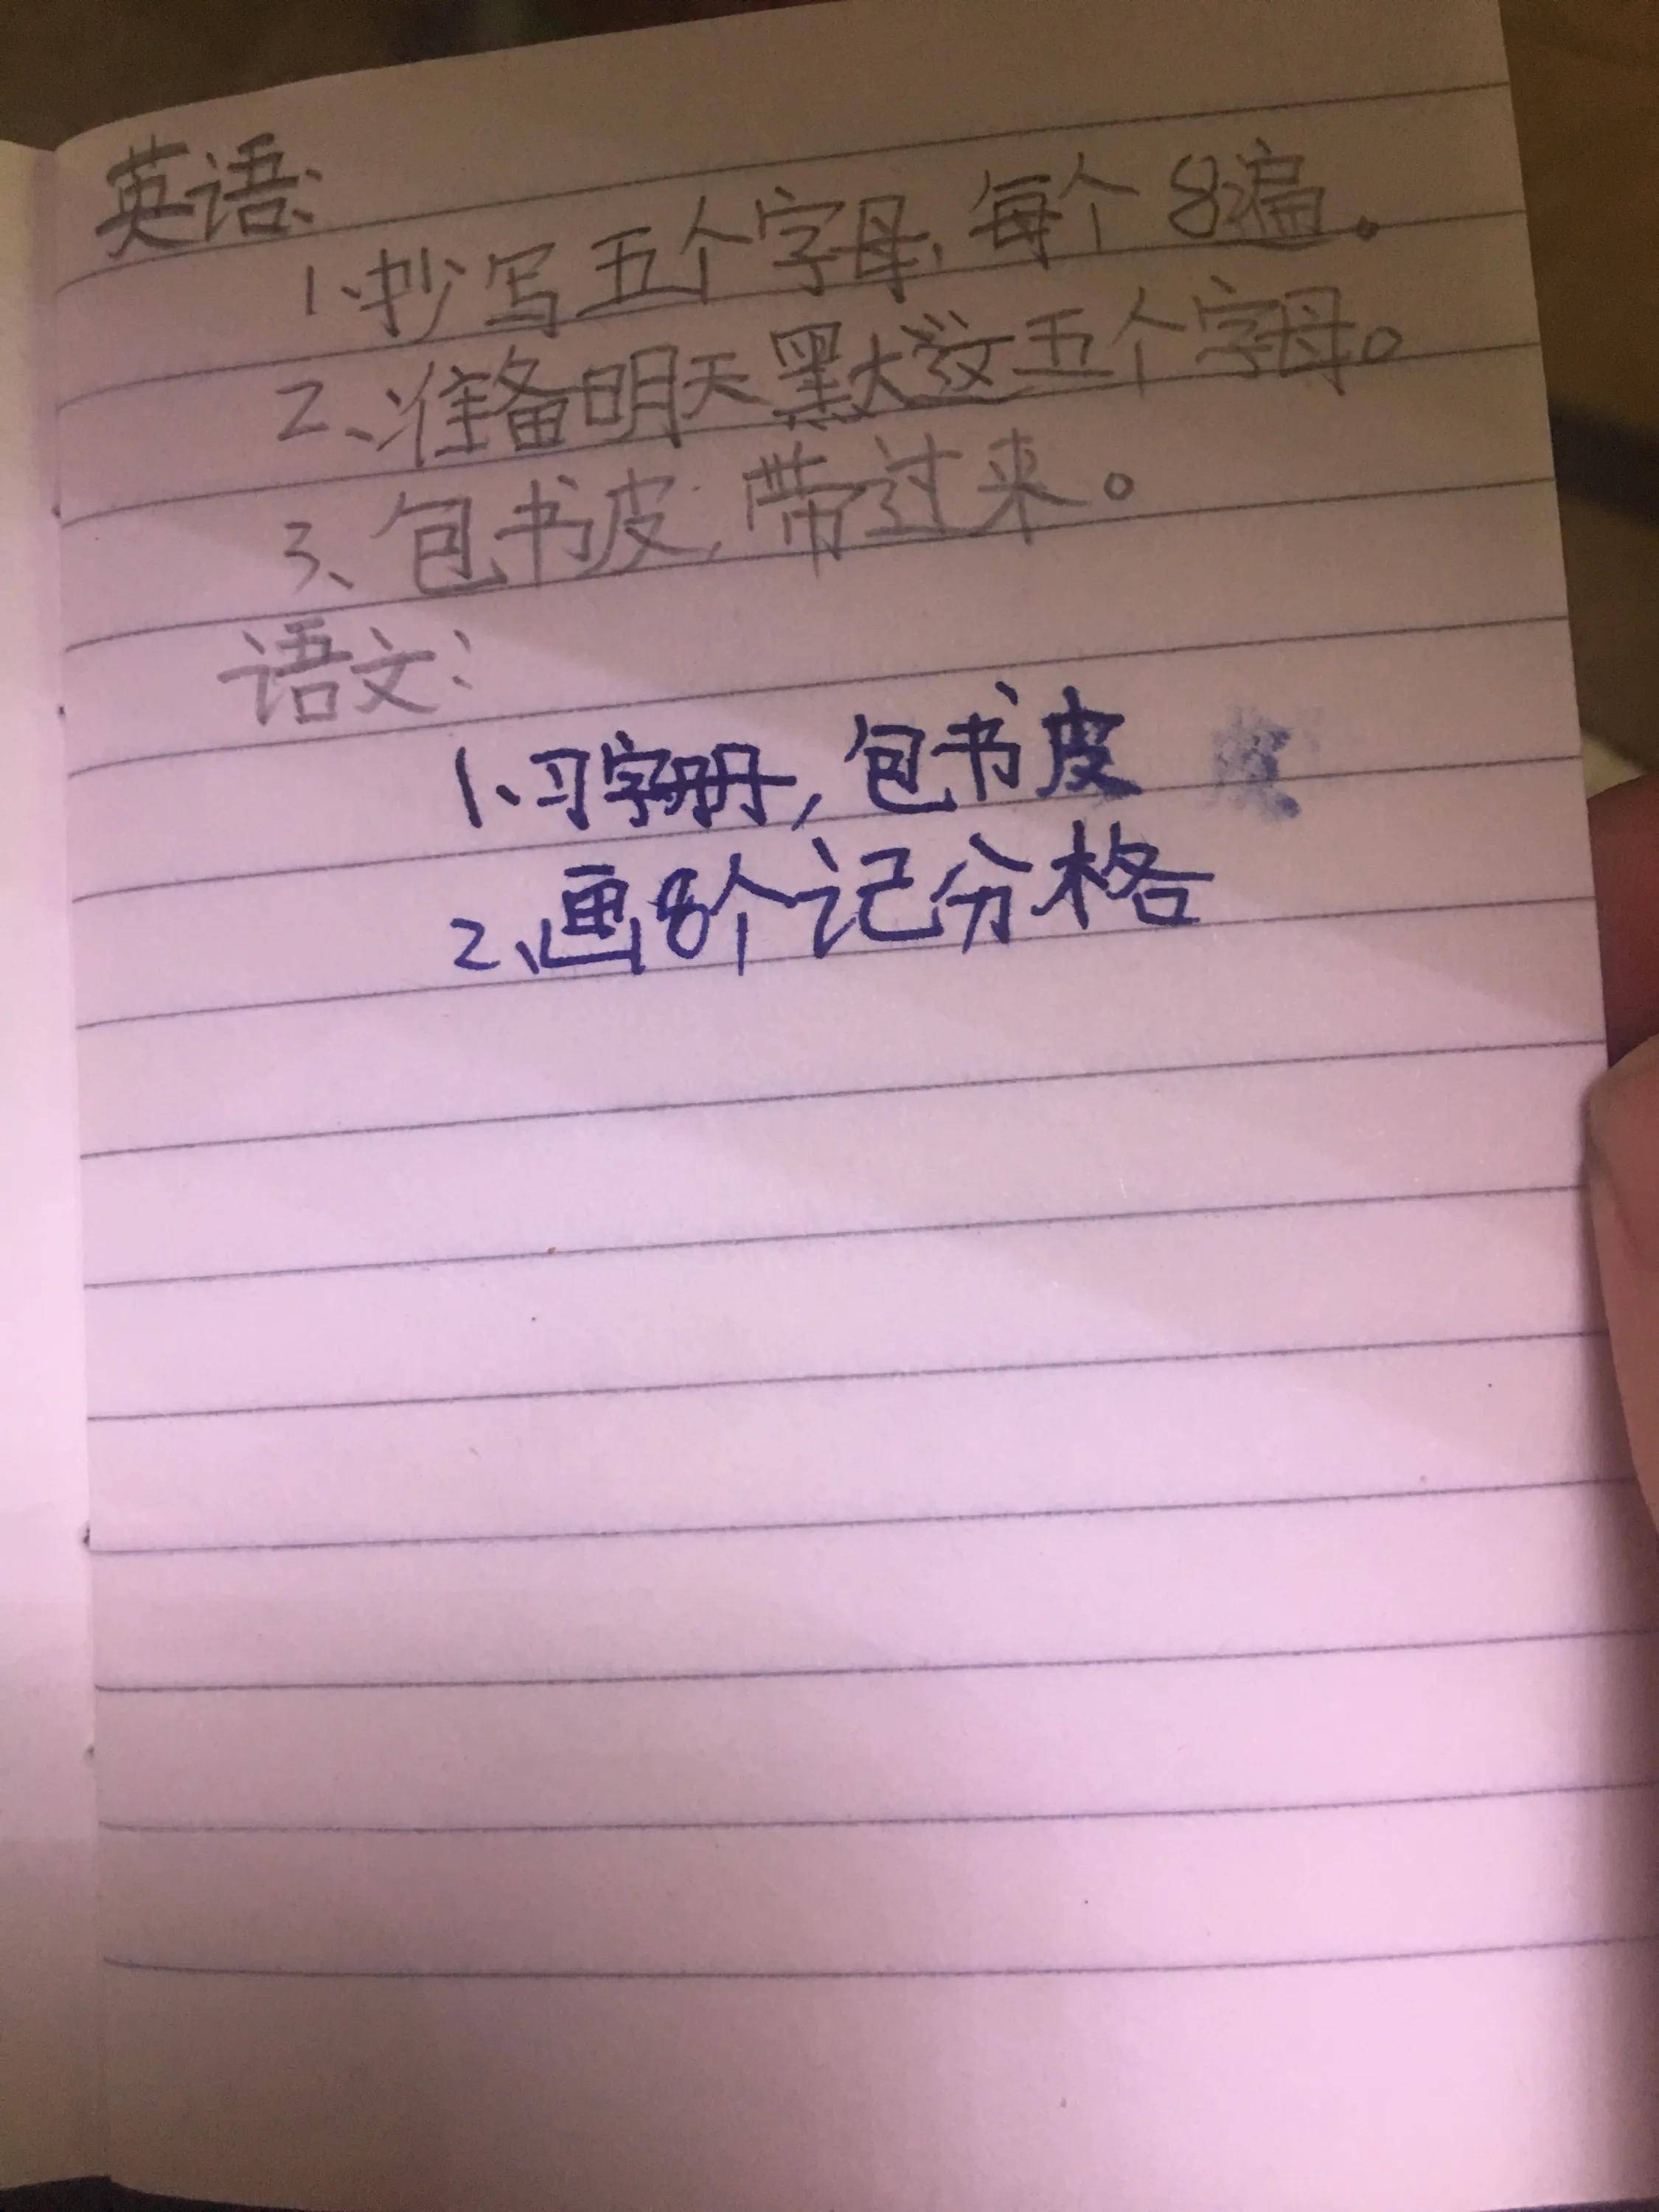 英语:
1、抄写五个字母,每个8遍。
2、准备明天默大这五个字母。
3、包书皮,带过来。
语文:
1、习字册,包书皮
2、画8个记分格